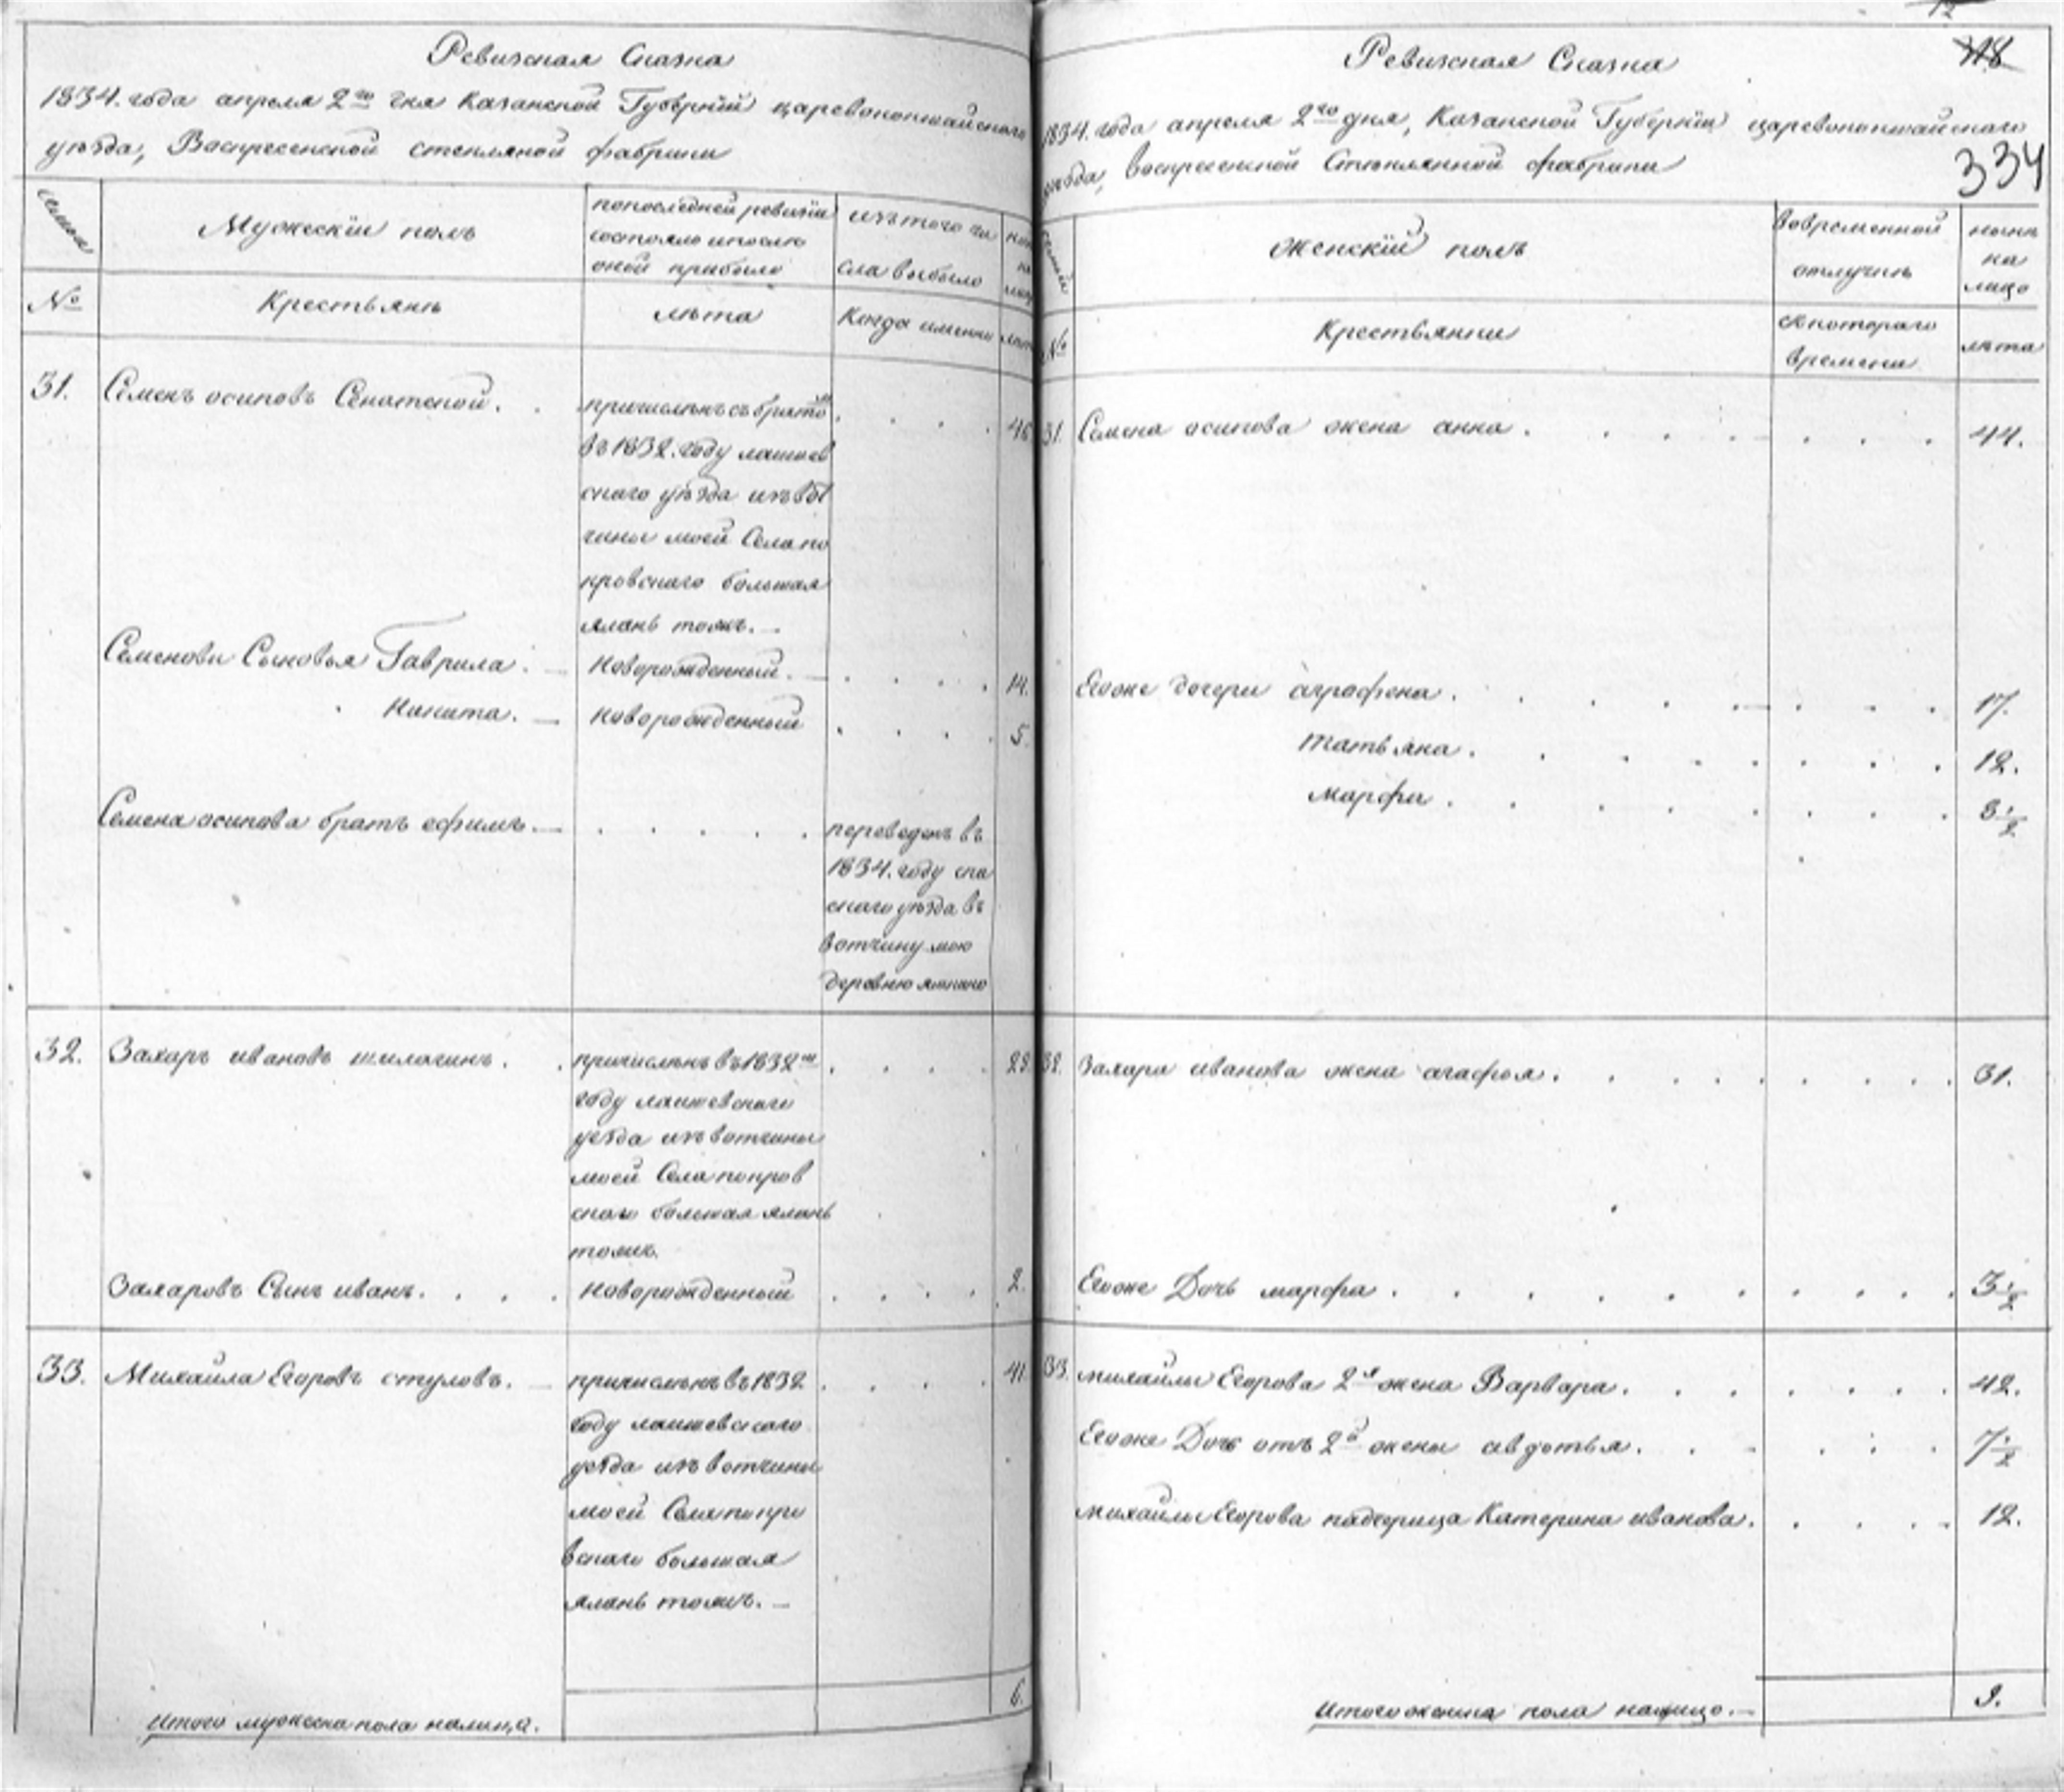 Ревизская Сказка
1834. года апреля 2го дня Казанской Губернiи царевококшайского
уѣзда, Воскресенской стекляной фабрики
семьи
Мужескiй полъ
попоследней ревизiи
состояло ипослѣ
оной прибыло
изътого чи
сла выбыло
№
Крестьянѣ
лѣта
Когда именно
лѣта
31.
Семенъ осиповъ Сенатской.
причисленъ съ братомъ
въ 1832. году лаишев
скаго уѣзда изъ вот
чины моей Села по
кровскаго большая
елань тожъ.
46
Семеновы Сыновья Гаврила.
Новорожденный.
14.
Никита.
Новорожденный
5.
Семена осипова братъ ефимъ.
переведенъ въ
1834. году спа
скаго уѣзда въ
вотчину мою
деревню
32.
Захаръ ивановъ шилагинъ.
причисленъ въ 1832м
году лаишевскаго
уезда изъ вотчины
моей Села покров
скаго большая елань
тожъ.
Захаровъ Сынъ иванъ.
Новорожденный
2.
33.
Михайла Егоровъ стуловъ.
причисленъ въ 1832
году лаишевскаго
уезда изъ вотчины
моей Села покро
вскаго большая
елань тожъ.
41.
Итого мужеска пола налицо.
6.
318
334
Ревизская Сказка
1834. года апреля 2го дня, Казанской Губернiи царевококшайскаго
уезда, воскресенской Стеклянной фабрики
семьи
Женскiй полъ
вовременной
отлучкѣ
нынѣ
на
лицо
№
Крестьянки
Скотораго
времени
лѣта
31.
Семена осипова жена анна.
44.
Егоже дочери аграфена.
17.
татьяна.
12.
марфа.
3 1/2
32.
Захара иванова жена агафья.
31.
Егоже Дочь марфа.
3 1/2
33.
михайлы Егорова 2я жена Варвара.
42.
Егоже Дочь отъ 2й жены авдотья.
7 1/2
михайлы Егорова падчерица Катерина иванова.
12.
Итого женска пола налицо.
9.